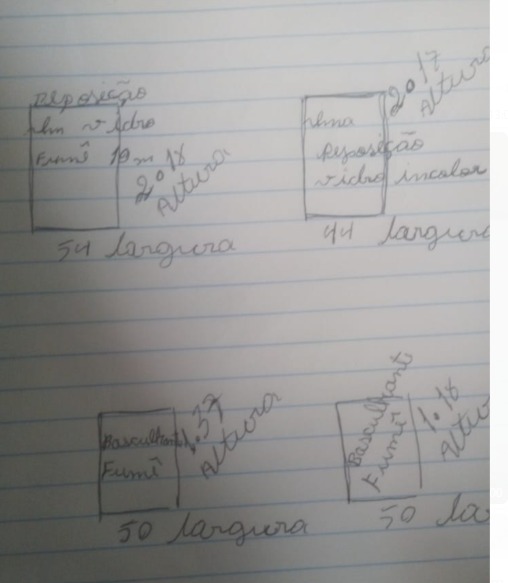 reposição
um vidro
Fumê 10 m
2º 18
Altura
54 largura
uma
reposição
vidro incolor
2º 17
Altura
44 largura
Basculhante
Fumê
1.37
Altura
50 largura
Basculhante
Fumê
1.18
Altu
50 la